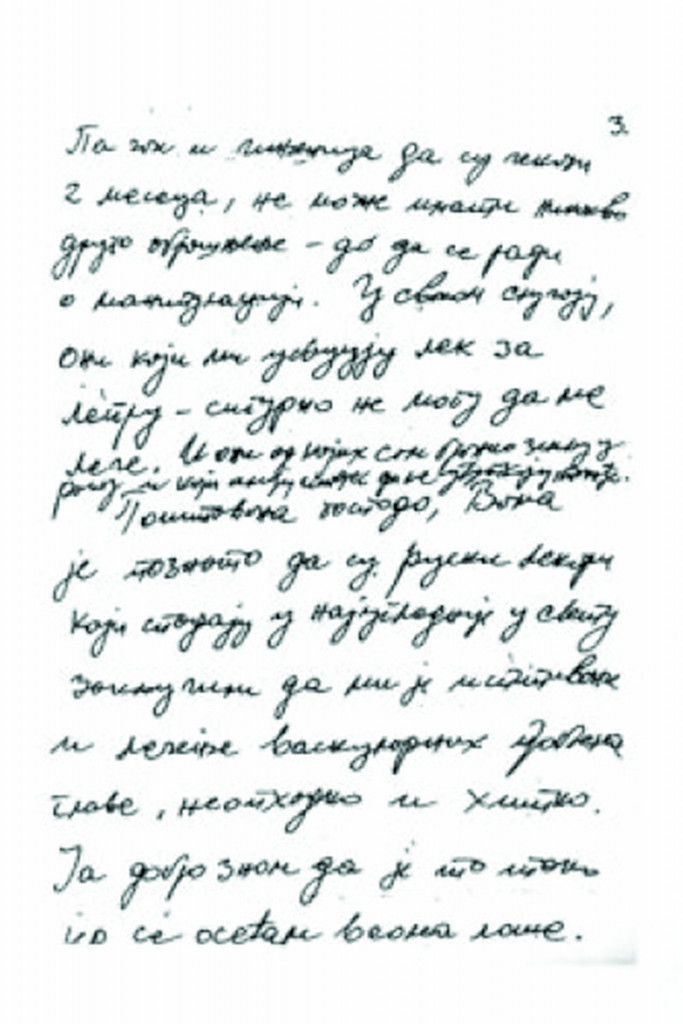 3.
Па чак и чињеница да су чекали
2 месеца, не може имати никакво
друго објашњење – до да се ради
о манипулацији. У сваком случају,
они који ми уваљују лек за
лепру – сигурно не могу да ме
лече. И они од којих сам бранио земљу у
рату и који имају интерес да ме
Поштована господо, Вама
је познато да су руски лекари
који спадају у најугледније у свету
закључили да ми је испитивање
и лечење васкуларних проблема
главе, неопходно и хитно.
Ја добро знам да је то тако
јер се осећам веома лоше.